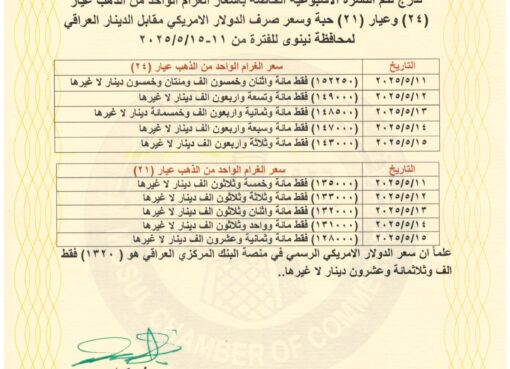 ندرج لكم النشرة الاسبوعية الخاصة بأسعار الغرام الواحد من الذهب عيار
(٢٤) وعيار (٢١) حبة وسعر صرف الدولار الامريكي مقابل الدينار العراقي
لمحافظة نينوى للفترة من ١١-٢٠٢٥/٥/١٥
التاريخ سعر الغرام الواحد من الذهب عيار (٢٤)
٢٠٢٥/٥/١١ (١٥٢٢٥٠) فقط مائة واثنان وخمسون الف ومئتان وخمسون دينار لا غيرها
٢٠٢٥/٥/١٢ (١٤٩٠٠٠) فقط مائة وتسعة واربعون الف دينار لا غيرها
٢٠٢٥/٥/١٣ (١٤٨٥٠٠) فقط مائة وثمانية واربعون الف وخمسمائة دينار لا غيرها
٢٠٢٥/٥/١٤ (١٤٧٠٠٠) فقط مائة وسبعة واربعون الف دينار لا غيرها
٢٠٢٥/٥/١٥ (١٤٣٠٠٠) فقط مائة وثلاثة واربعون الف دينار لا غيرها
التاريخ سعر الغرام الواحد من الذهب عيار (٢١)
٢٠٢٥/٥/١١ (١٣٥٠٠٠) فقط مائة وخمسة وثلاثون الف دينار لا غيرها
٢٠٢٥/٥/١٢ (١٣٣٠٠٠) فقط مائة وثلاثة وثلاثون الف دينار لا غيرها
٢٠٢٥/٥/١٣ (١٣٢٠٠٠) فقط مائة واثنان وثلاثون الف دينار لا غيرها
٢٠٢٥/٥/١٤ (١٣١٠٠٠) فقط مائة وواحد وثلاثون الف دينار لا غيرها
٢٠٢٥/٥/١٥ (١٢٨٠٠٠) فقط مائة وثمانية وعشرون الف دينار لا غيرها
علماً ان سعر الدولار الامريكي الرسمي في منصة البنك المركزي العراقي هو (١٣٢٠) فقط
الف وثلاثمائة وعشرون دينار لا غيرها..
CHAMBER OF COMM